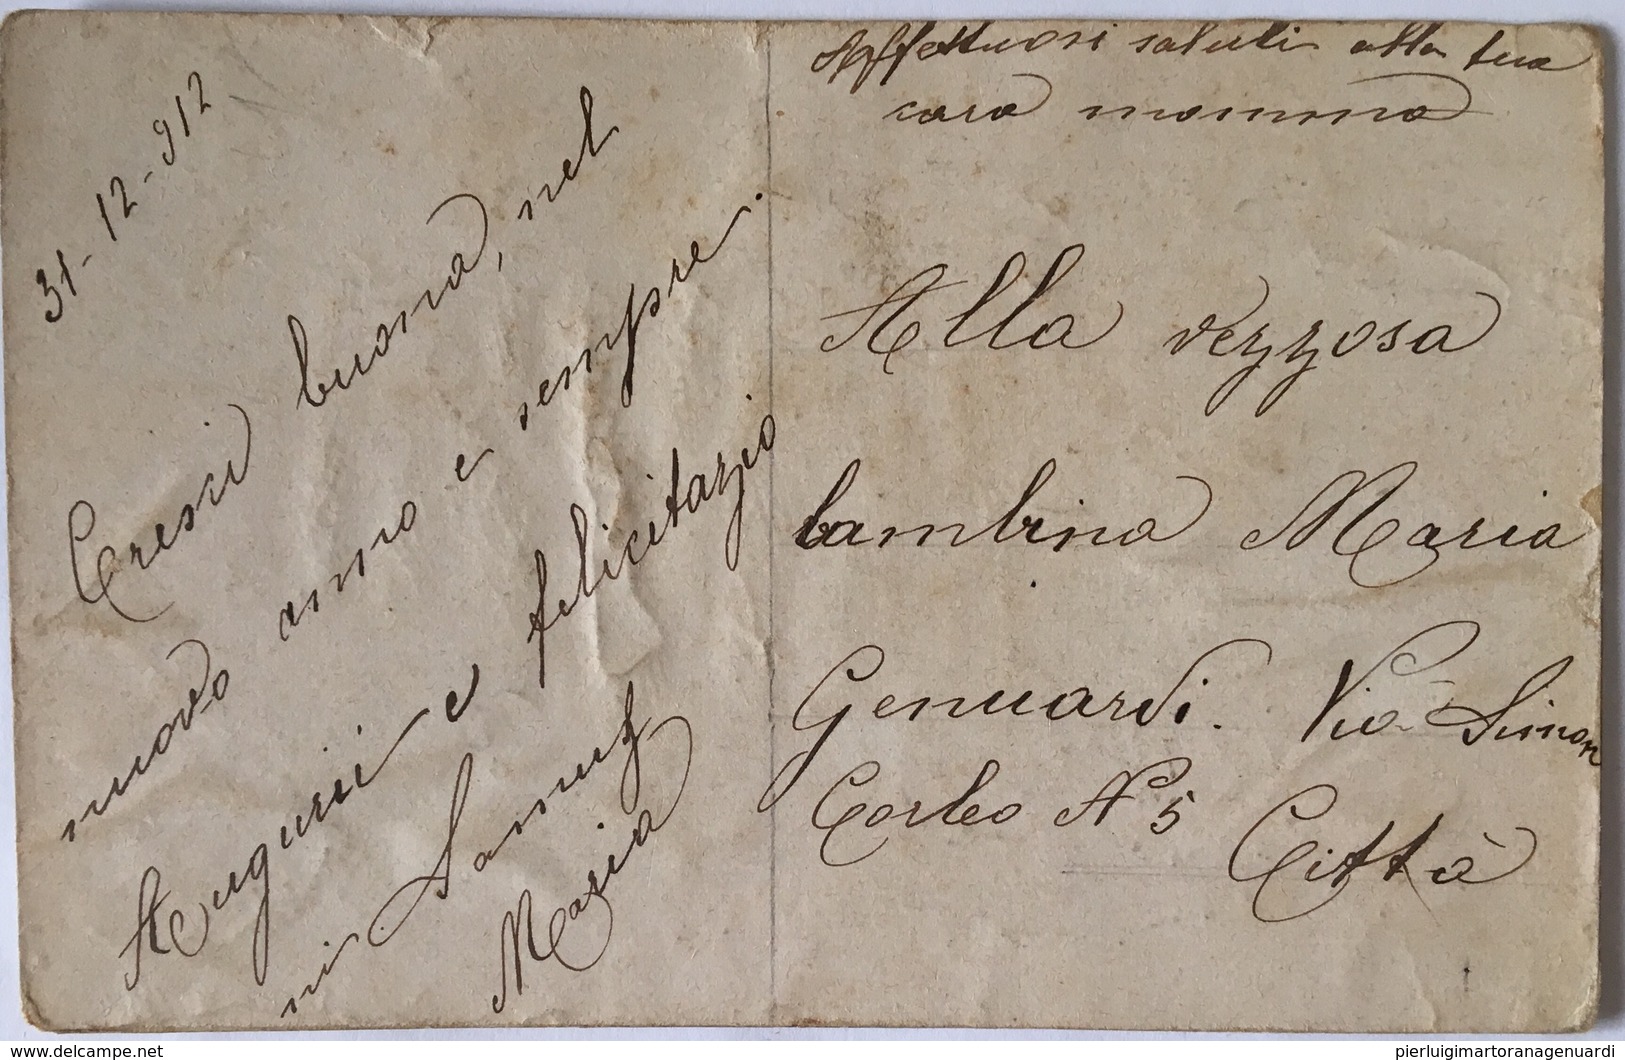 31-12-912
Cresci buona, nel
nuovo anno e sempre.
Auguri e felicitazio
ni
Maria
Affettuosi saluti alla tua
cara mamma
Alla vezzosa
bambina Maria
Genuardi. Via Simon
Corleo N 5
Città
delcampe.net
pierluigimartoranagenuardi